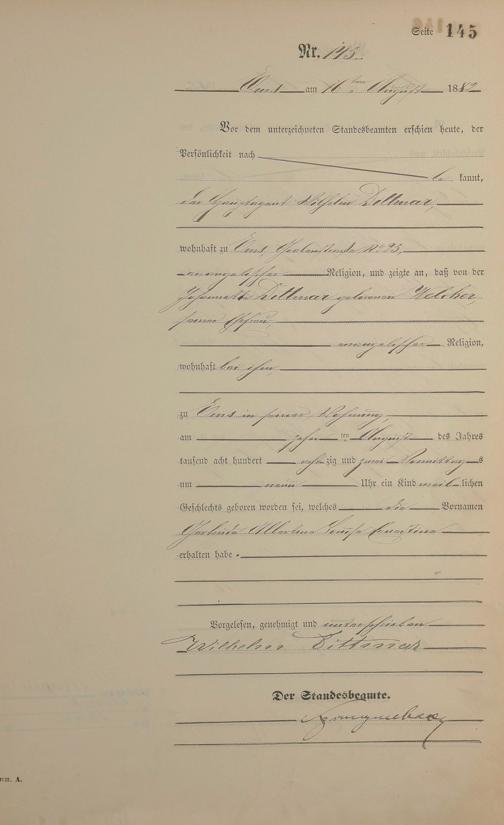 Seite 145
Nr. 145.
Ems am 16ten August 1882
Vor dem unterzeichneten Standesbeamten erschien heute, der
Persönlichkeit nach
be kannt,
der Wilhelm Dittmar,
wohnhaft zu Ems, No 25,
evangelischer Religion, und zeigte an, daß von der
Dittmar geborenen
seiner Ehefrau,
evangelischer Religion,
wohnhaft bei ihm
zu Ems in seiner Wohnung,
am zehn ten August des Jahres
tausend acht hundert acht zig und zwei Vormittag s
um neun Uhr ein Kind weib lichen
Geschlechts geboren worden sei, welches die Vornamen
Albertine Louise
erhalten habe.
Vorgelesen, genehmigt und unterschrieben
Wilhelm Dittmar
Der Standesbeamte.
A.